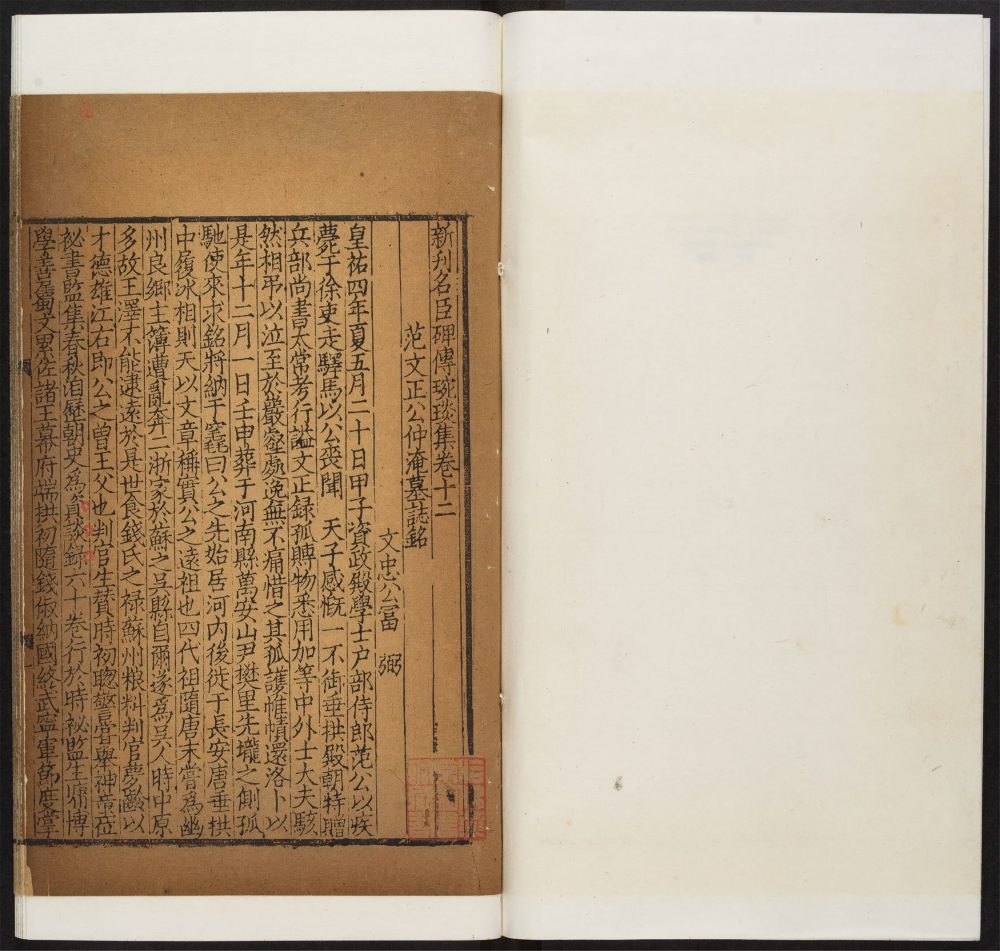 新刋名臣碑傳琬琰集卷十二
范文正公仲淹墓誌銘
文忠公富　弼
皇祐四年夏五月二十日甲子資政殿學士户部侍郎范公以疾
薨于徐吏走驛馬以公喪聞　天子感慨一不御垂拱殿朝特贈
兵部尚書太常考行謚文正録孤賻物悉用加等中外士大夫駭
然相弔以泣至於巖壑處逸無不痛惜之其孤護帷幀還洛卜以
是年十二月一日壬申葬于河南縣萬安山尹樊里先壠之側孤
馳使來求銘將納于竁曰公之先始居河内後徙于長安唐垂拱
中履冰相則天以文章稱實公之遠祖也四代祖隨唐末嘗為幽
州良鄉主簿遭亂奔二浙家於蘇之吳縣自爾遂為吳人時中原
多故王澤不能逮遠於是世食錢氏之禄蘇州粮料判官夢齡以
才德雄江右即公之曾王父也判官生贊時初聦警甞舉神童位
祕書監集春秋洎歷朝史為資談録六十卷行於時祕監生墉博
學善屬文累佐諸王幕府端拱初隨錢俶納國終武寧軍節度掌